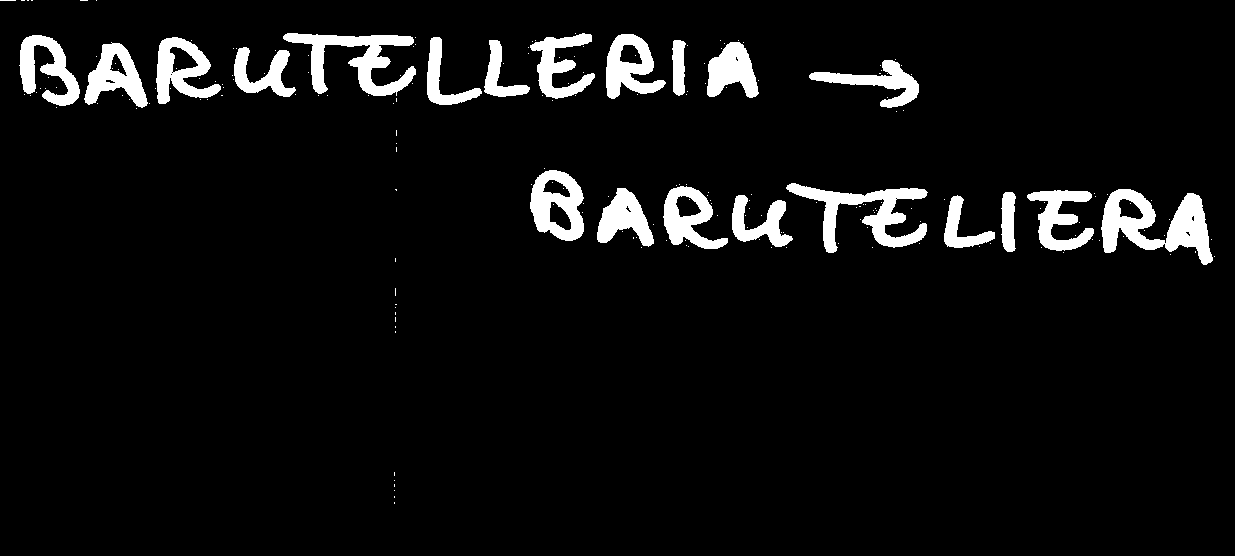 BARUTELLERIA →
BARUTELIERA